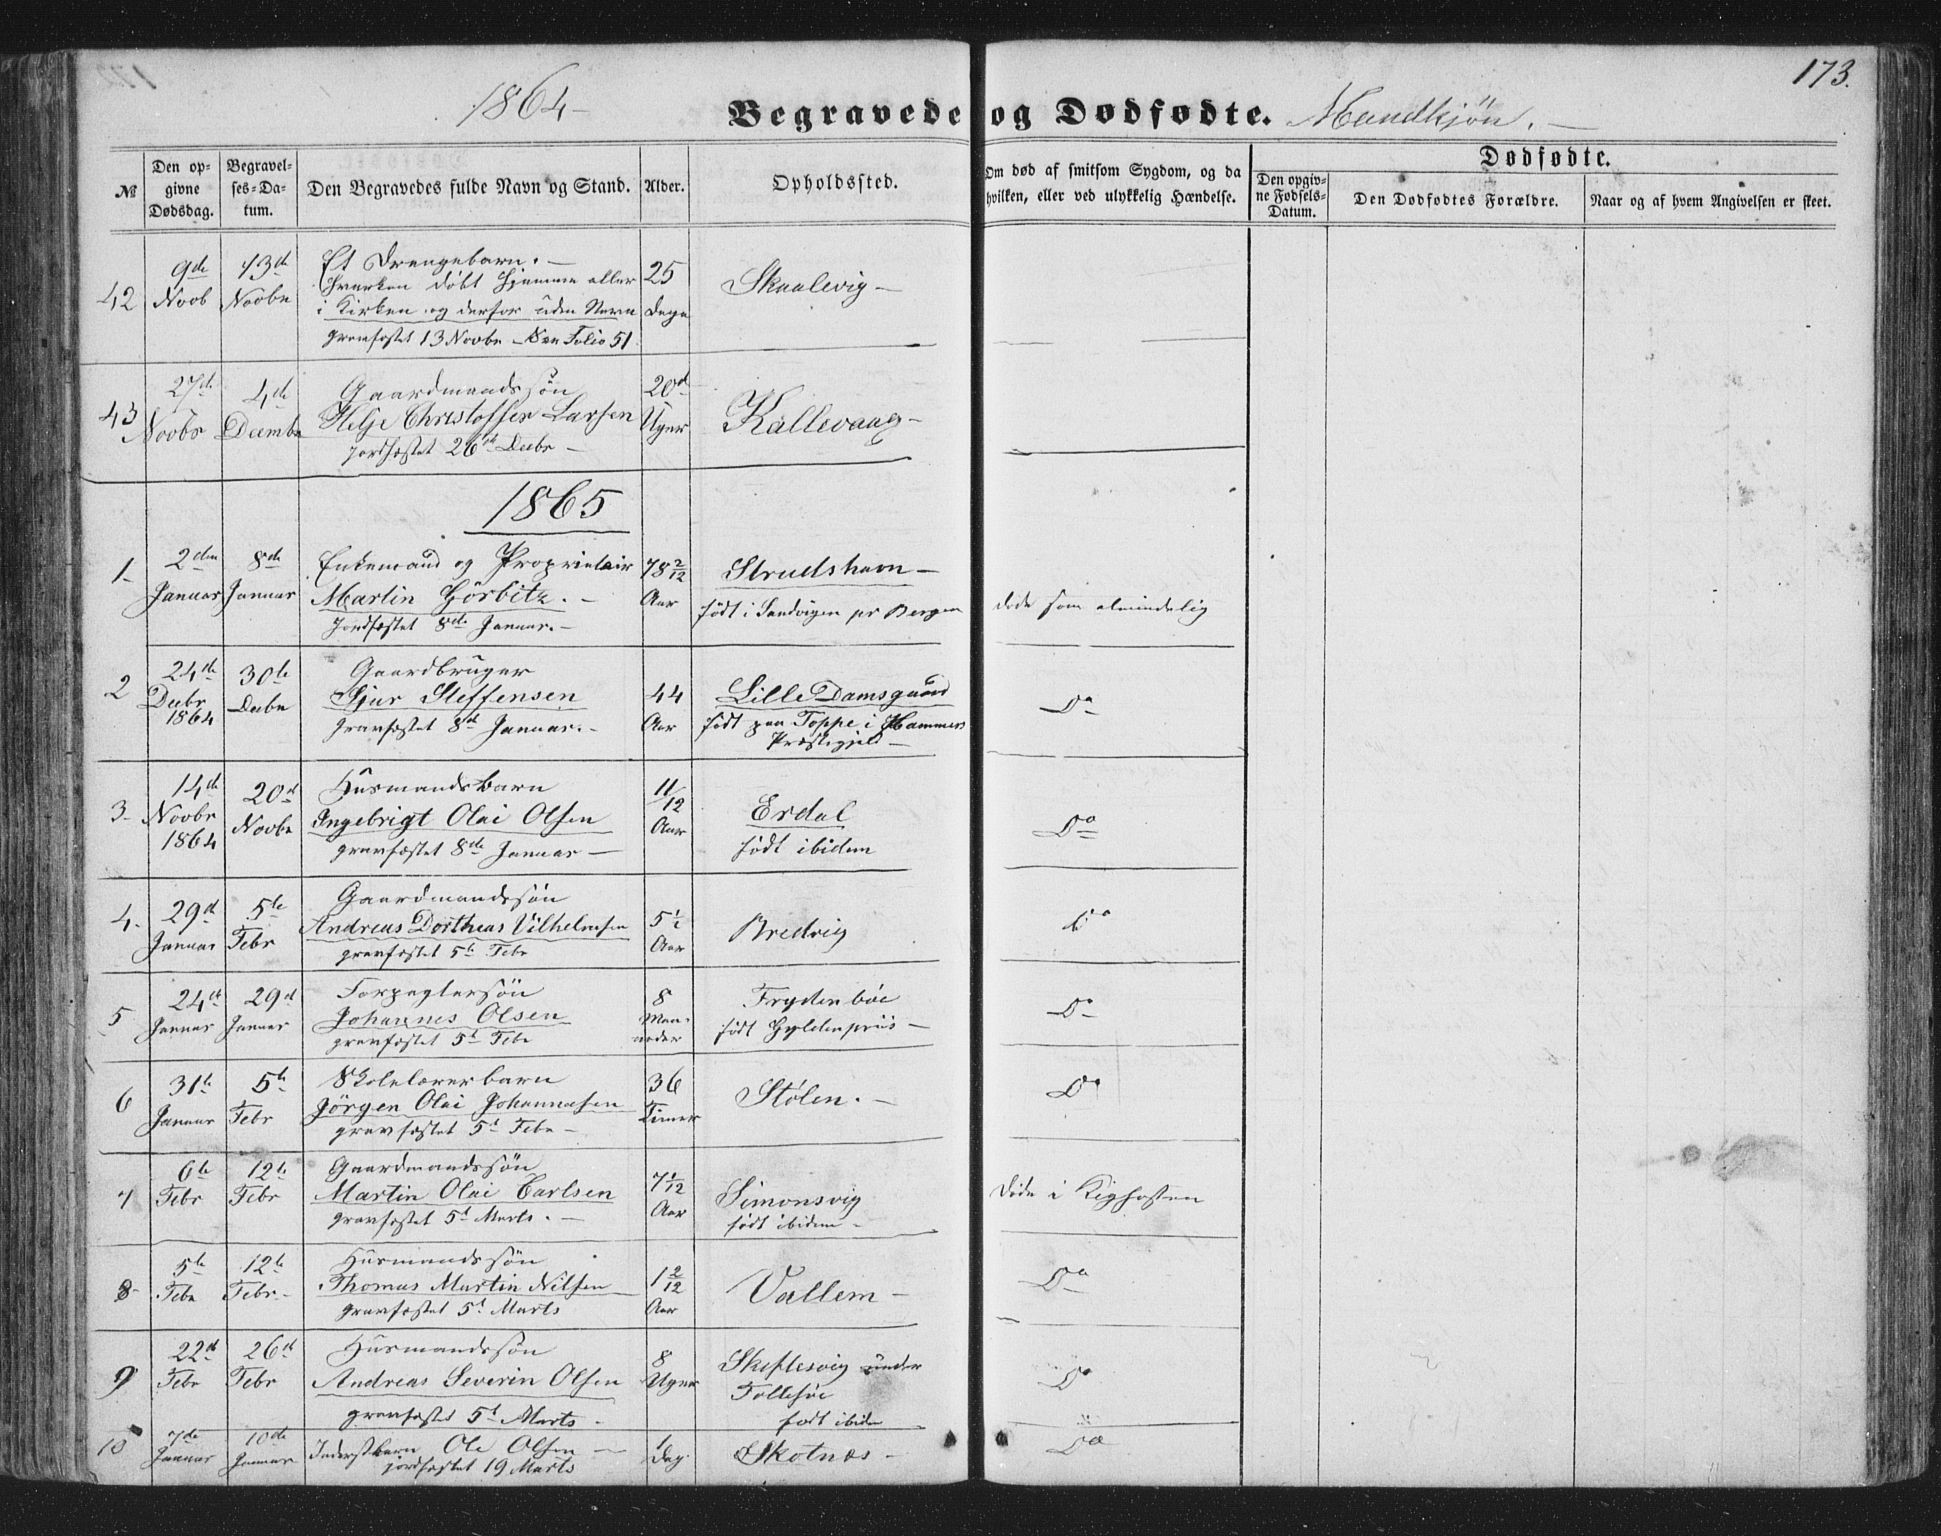 173.
1864
Begravede og Dødfødte. Mandkjön.
№
Den opgivne Dødsdag.
Begravelses-Datum.
Den Begravedes fulde Navn og Stand.
Alder.
Opholdssted.
Om død af smitsom Sygdom, og da hvilken, eller ved ulykkelig Hændelse.
Dødfødte.
Den opgivne Fødsels-Datum.
Den Dødfødtes Forældre.
Naar og af hvem Angivelsen er skeet.
42
9de Novb
13de Novbr
Et Drengebarn.
hverken döbt hjemme eller
i Kirken og derfor uden Navn
gravfæstet 13 Novbr Folio 51
25 Dage
Skaalevig
43
27de Novbr
4de Decembr
Gaardmandssön
Helje Christoffer Larsen
jordfæstet 26de Decbr
20 Uger
Kallevaag
1865
1
2den Januar
8de Januar
Enkemand og Proprietair
Martin Görbitz.
Jordfæstet 8de Januar.
78 2/12 Aar
Strudshavn
født i Sandvigen pr Bergen
döde som almindelig
2
24de Decbr 1864
30te Decbr
Gaardbruger
Sjur Steffensen
gravfæstet 8de Januar.
44 Aar
Lille Damsgaard
født paa Toppe i Hammers
Præstegjeld
Do
3
14de Novbr 1864
20de Novbr
Husmandsbarn
Ingebrigt Olai Olsen
gravfæstet 8de Januar
11/12 Aar
Erdal
født ibidem
Do
4.
29de Januar
5te Febr
Gaardmandssön
Andreas Dortheas Vilhelmsen
gravfæstet 5te Febr
5½ Aar
Bredvig
Do
5
24de Januar
29de Januar
Forpagtersön
Johannes Olsen
gravfæstet 5te Febr
8 Maaneder
Frydenböe
født Gyldenpriis
Do
6
31te Januar
5te Febr
Skolelærerbarn
Jörgen Olai Johannesen
gravfæstet 5te Febr
36 Timer
Stölen.
Do
7
6te Febr
12te Febr
Gaardmandssön
Martin Olai Carlsen
gravfæstet 5te Marts.
7 1/12 Aar
Simonsvig
født ibidem
Döde i Kighosten
8
5te Febr
12te Febr
Husmandssön
Thomas Martin Nilsen
gravfæstet 5te Marts
1 2/12 Aar
Vallem
Do
9
22de Febr
26de Febr
Husmandssön
Andreas Severin Olsen
gravfæstet 5te Marts
8 Uger
Skiftesvig under
Follesöe
født ibidem
Do
10
7de Januar
10de Januar
Inderstbarn Ole Olsen
jordfæstet 19 Marts
1 Dag
Skotnæs
Do